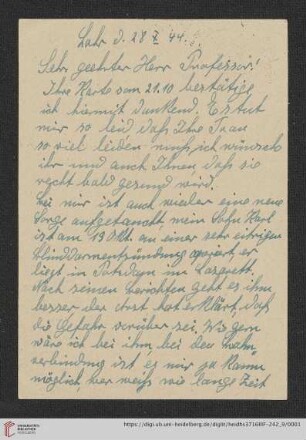 Lahr d. 28 X 44.
Sehr geehrter Herr Professor!
Ihre Karte vom 21.10 bestätige
ich hiermit dankend. Es tut
mir so leid daß Ihre Frau
so viel leiden muß, ich wünsche
ihr und auch Ihnen, daß sie
recht bald gesund wird.
Bei mir ist auch wieder eine neue
Sorge aufgetaucht, mein Sohn Karl
ist am 19 Okt. an einer sehr eitrigen
Blinddarmentzündung operiert, er
liegt in im Lazarett.
Nach seinen Berichten geht es ihm
besser der Arzt hat erklärt, daß
die Gefahr vorüber sei. Wie gern
wäre ich bei ihm, bei den Bahn
verbindung ist es mir so kaum
möglich, wer weiß wie lange Zeit
https://digi.ub.uni-heidelberg.de/diglit/
UNIVERSITÄTS-
BIBLIOTHEK
HEIDELBERG